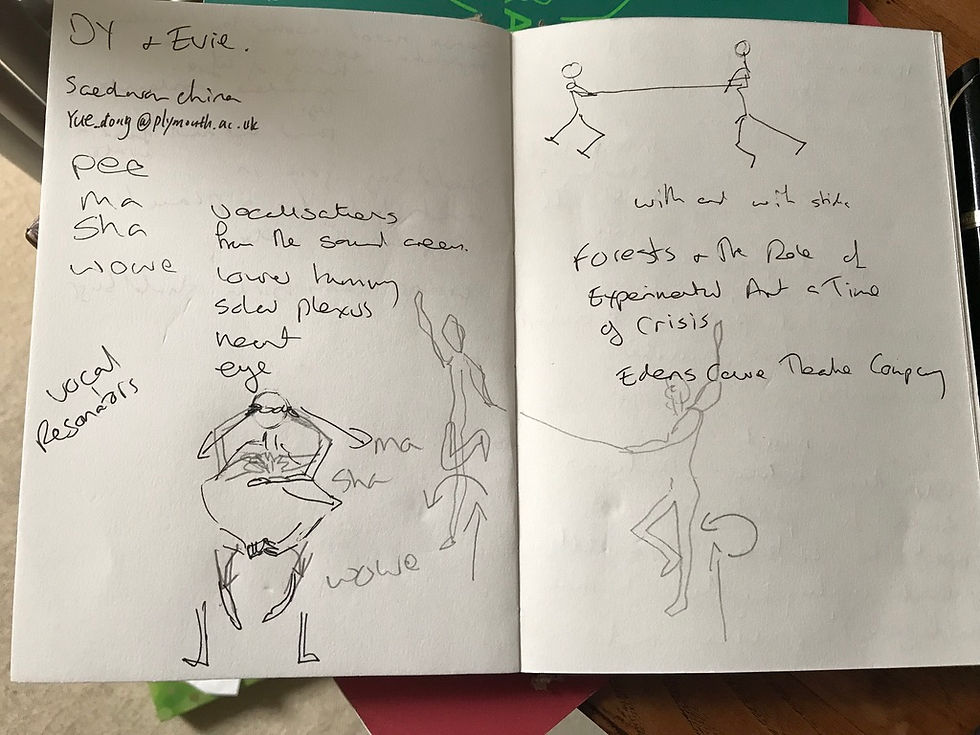 DY & Evie.
china
Yue_dong@plymouth.ac.uk
pee
ma
sha
wowe
vocalisations
from the sound areas.
lower tummy
solar plexus
heart
eye
vocal
Resonators
ma
sha
wowe
with and with sticks
Forests & the Role of
Experimental Art a Time
of Crisis
Edens Cave Theatre Company